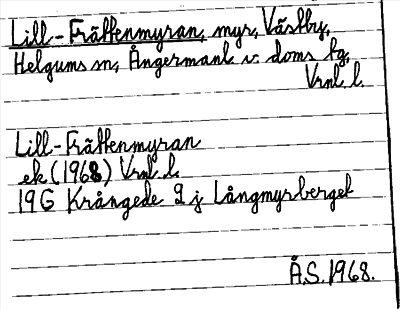 Lill-Frättenmyran, myr, Västby,
Helgums sn, Ångermanl. v. doms. tg,
Vrnl. l.
Lill-Frättenmyran
ek (1968) Vrnl. l.
19G Krångede 2 j Långmyrberget
Å.S. 1968.